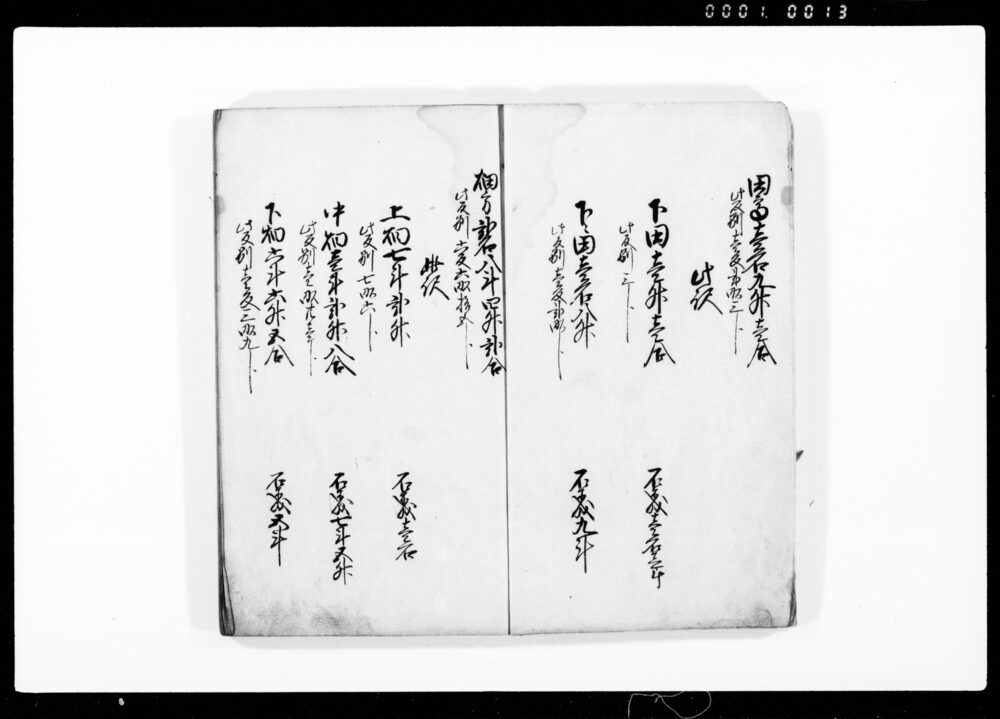 0001. 0013
田高壱石九升壱合
此反別壱反弐畝三歩
此訳
下田壱升壱合
石盛壱石壱斗
此反別三歩
下々田壱石八升
石盛九斗
此反別壱反弐畝歩
畑方弐石八斗四升弐合
此反別六反六畝拾五歩
此訳
上畑七斗弐升
石盛壱石
此反別七畝六歩
中畑壱斗弐升八合
石盛七斗五升
此反別壱畝廿壱歩
下畑六斗六升五合
石盛五斗
此反別壱反三畝九歩